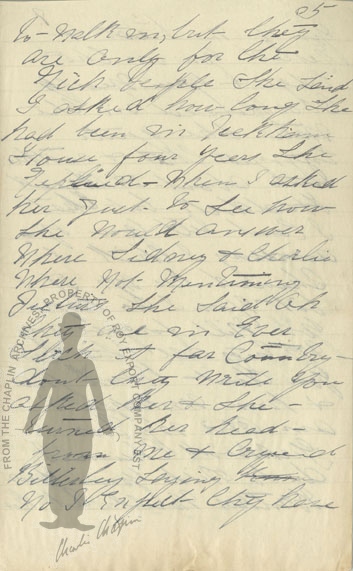 25
to walk in, but they
are only for the
rich people she said
I asked how long she
had been in Peckham
House four years she
replied - When I asked
her just to see how
she would answer
where Sidney & Charlie
where not mentioning
she said Oh
they are in Ever
far Country -
dont they write you
asked her & she
turned her head -
from me & cryed
Bitterley saying
No I Expect they have
FROM THE CHAPLIN ARCHIVES. PROPERTY OF ROY EXPORT COMPANY EST
Charlie Chaplin